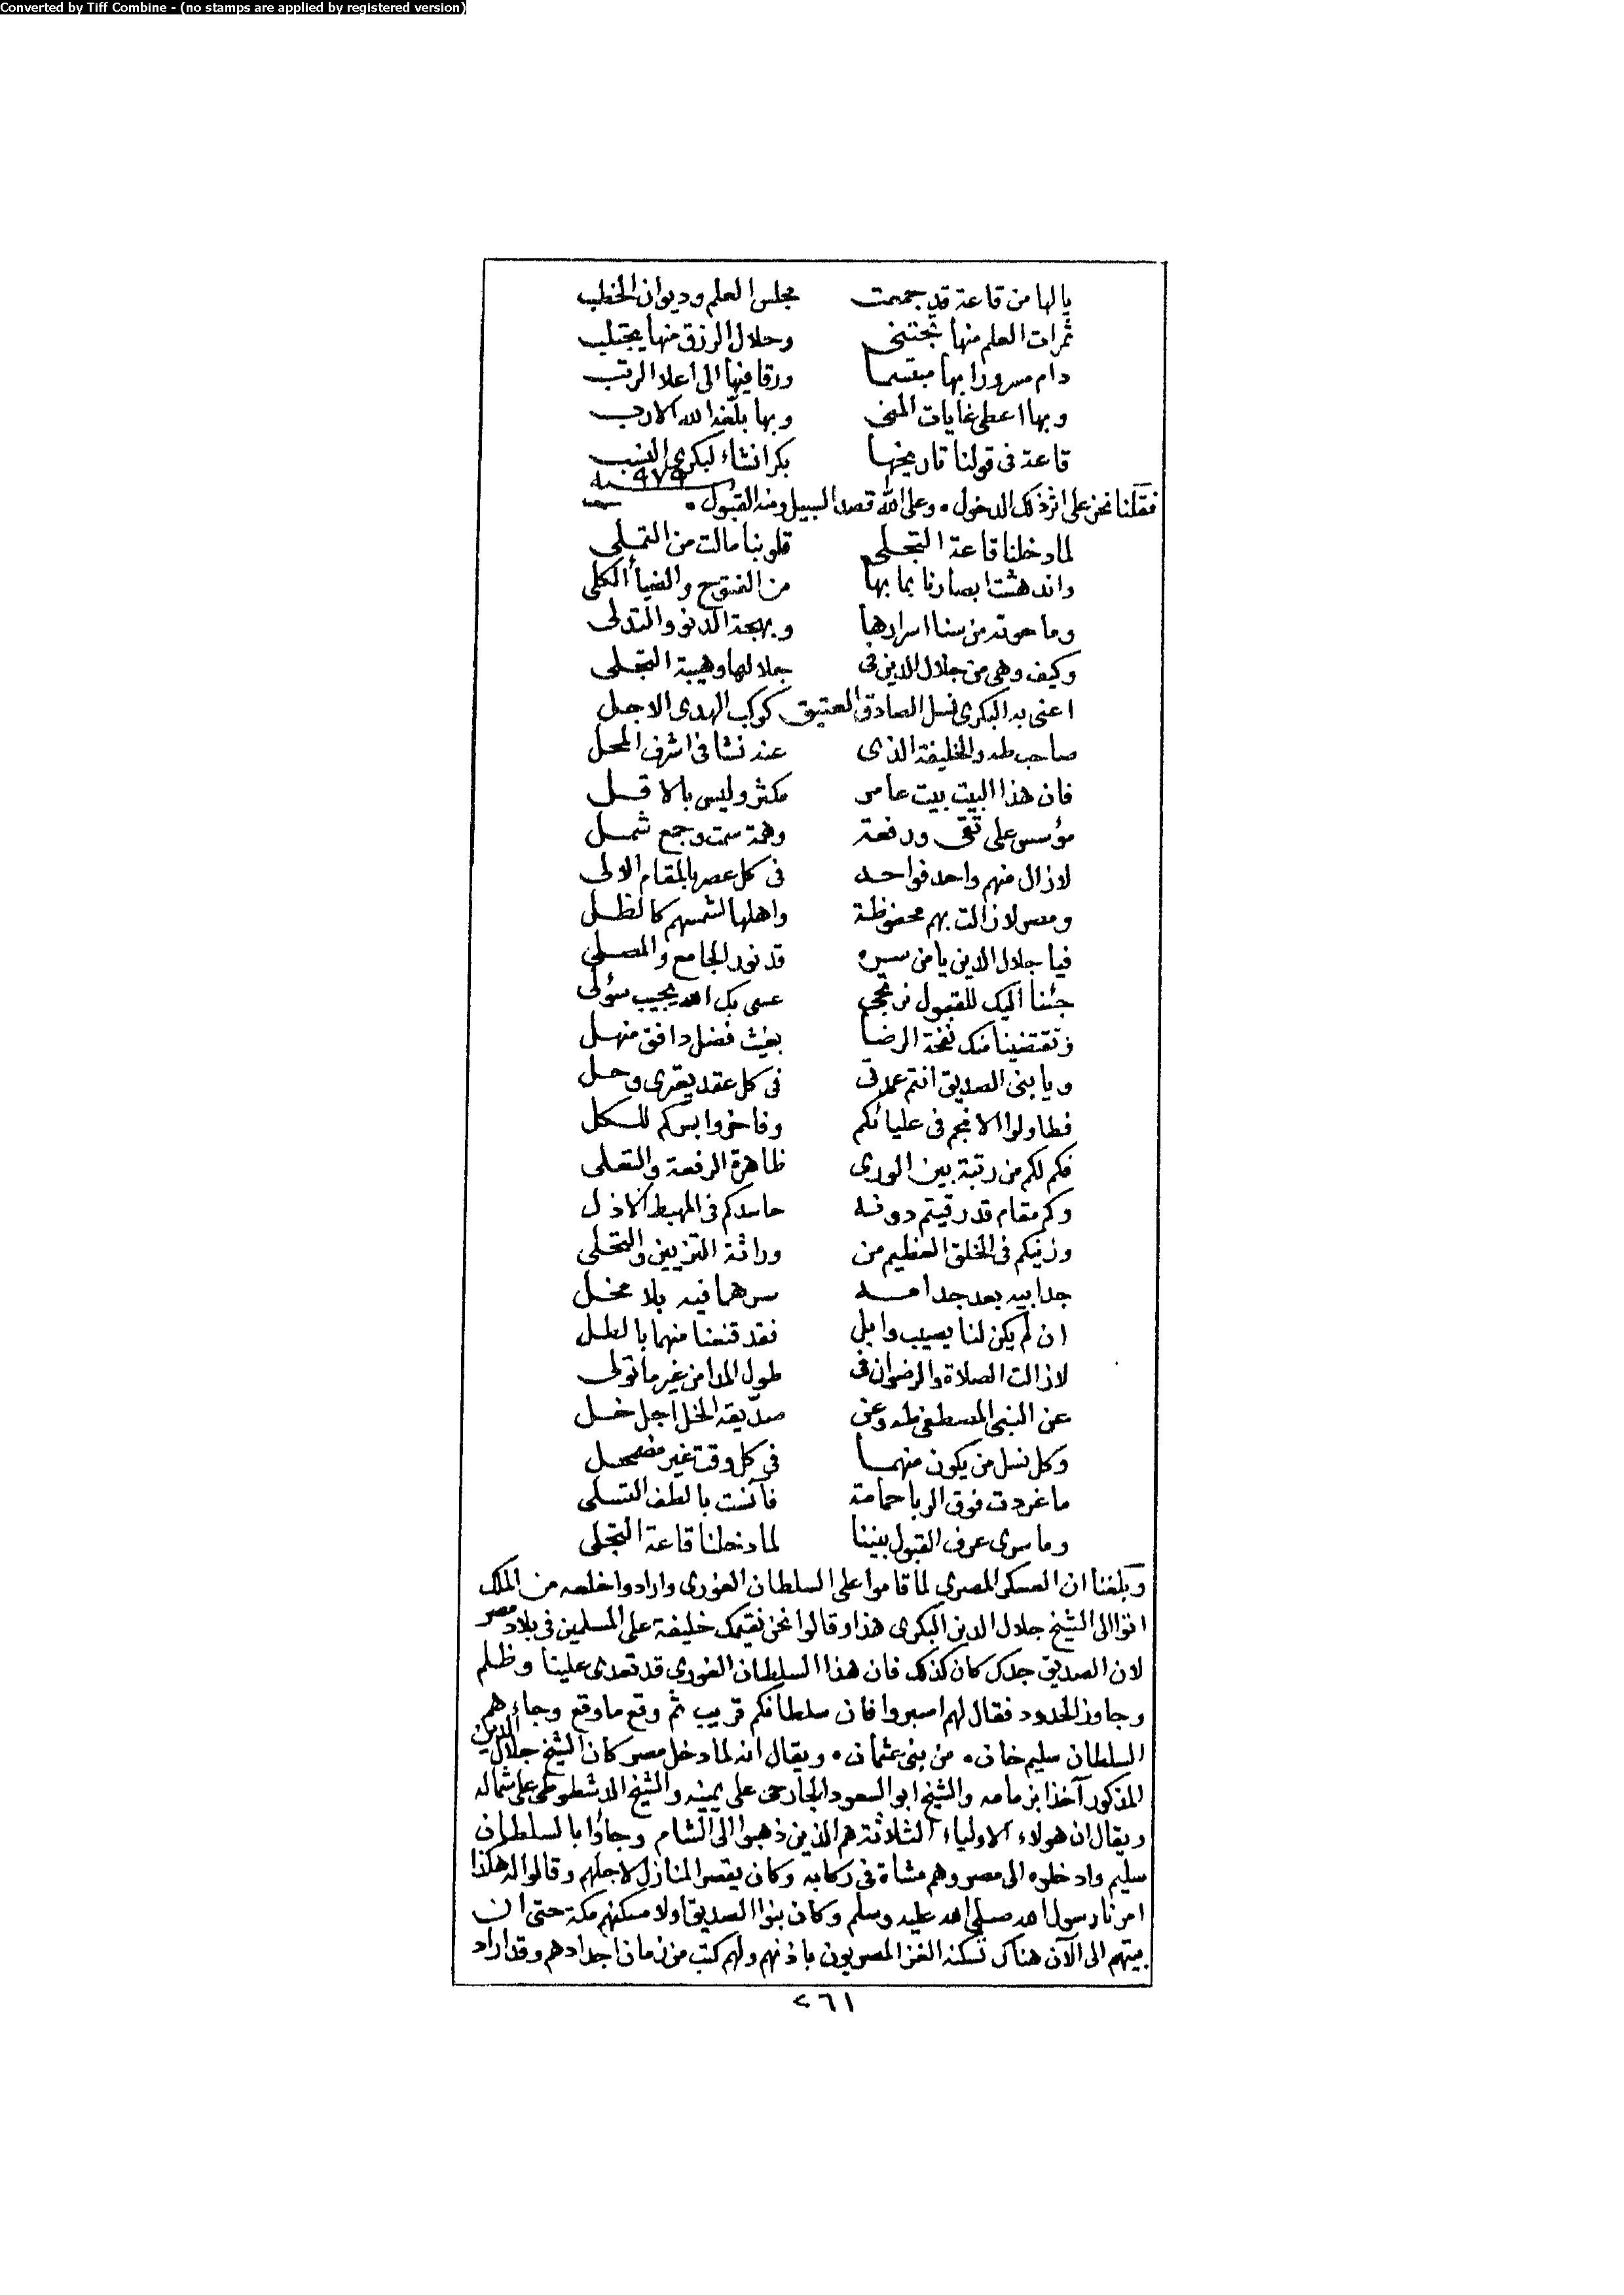 Converted by Tiff Combine - (no stamps are applied by registered version)
يالها من قاعة قد جمعت مجلس العلم وديوان الخطب
ثمرات العلم منها تجتنى وحلال الرزق منها يجتلب
دام مسرورا بها مبتسما ورقا فيها الى اعلا الرتب
وبها اعطى غايات المنى وبها بلّغه الله الارب
قاعة فى قولنا تاريخها بكر انشاء لبكرى النسب
سنة ٩٧٩
فقلنا نحن على اثر ذلك الدخول • وعلى الله قصد السبيل ومنه القبول •
لما دخلنا قاعة التجلى قلوبنا مالت من التملى
واندهشت ابصارنا بما بها من الفتوح والضياء الكلى
وما حوته من سنا اسرارها وبهجة الدنو والتدلى
وكيف وهى من جلال الدين فى جلالها وهيبة التجلى
اعنى به البكرى نسل الصادق العتيق كوكب الهدى الاجل
صاحب طه والخليفة الذى عنه نشا فى اشرف المحل
فان هذا البيت بيت عامر مكثر وليس بالاقل
مؤسس على تقى ورفعة وهمة سمت وجمع شمل
لازال منهم واحد فواحد فى كل عصر بالمقام الاولى
ومصر لازالت بهم محفوظة واهلها لشمسهم كالظل
فيا جلال الدين يا من سره قد نور الجامع والمصلى
جئنا اليك للقبول نرتجى عسى بك الله يجيب سؤلى
وتقتضينا منك نفحة الرضا بغيث فضل دافق منهل
ويا بنى الصديق انتم عمدتى فى كل عقد يعترى وحل
فطاولوا الانجم فى عليائكم وفاخروا بسركم للكل
فكم لكم من رتبة بين الورى ظاهرة الرفعة والتعلى
وكم مقام قد رقيتم دونه حاسدكم فى المهبط الاذل
وزينكم فى الخلق العظيم من وراثة التزيين والتحلى
جد ابيه بعد جد امه سرهما فيه بلا مخل
ان لم يكن لنا يصيب وابل فقد قنعنا منهما بالطل
لازالت الصلاة والرضوان فى طول المدا من غير ما تولى
عن النبى المصطفى طه وعن صدّيقه الخل اجل خل
وكل نسل من يكون منهما فى كل وقت غير مضمحل
ما غردت فوق الربا حمامة فآنست بالطف التسلى
وما سرى عرف القبول بيننا لما دخلنا قاعة التجلى
وبلغنا ان العسكر المصرى لما قاموا على السلطان الغورى وارادوا خلعه من الملك
اتوا الى الشيخ جلال الدين البكرى هذا وقالوا نحن نقيمك خليفة على المسلمين فى بلاد مصر
لان الصديق جدك كان كذلك فان هذا السلطان الغورى قد تعدى علينا وظلم
وجاوز الحدود فقال لهم اصبروا فان سلطانكم قريب ثم وقع ما وقع وجاءهم
السلطان سليم خان • من بنى عثمان • ويقال انه لما دخل مصر كان الشيخ جلال الدين
المذكور آخذا بزمامه والشيخ ابو السعود الجارحى على يمينه والشيخ الدشطوطى على شماله
ويقال ان هولاء الاولياء الثلاثة هم الذين ذهبوا الى الشام وجاؤا بالسلطان
سليم وادخلوه الى مصر وهم مشاة فى ركابه وكان يقصر المنازل لاجلهم وقالوا له هكذا
امرنا رسول الله صلى الله عليه وسلم وكان بنوا الصديق اولا مسكنهم مكة حتى ان
بيتهم الى الآن هناك تسكنه الغز المصريون باذنهم ولهم كتب من زمان اجدادهم وقد اراد
٢٦١